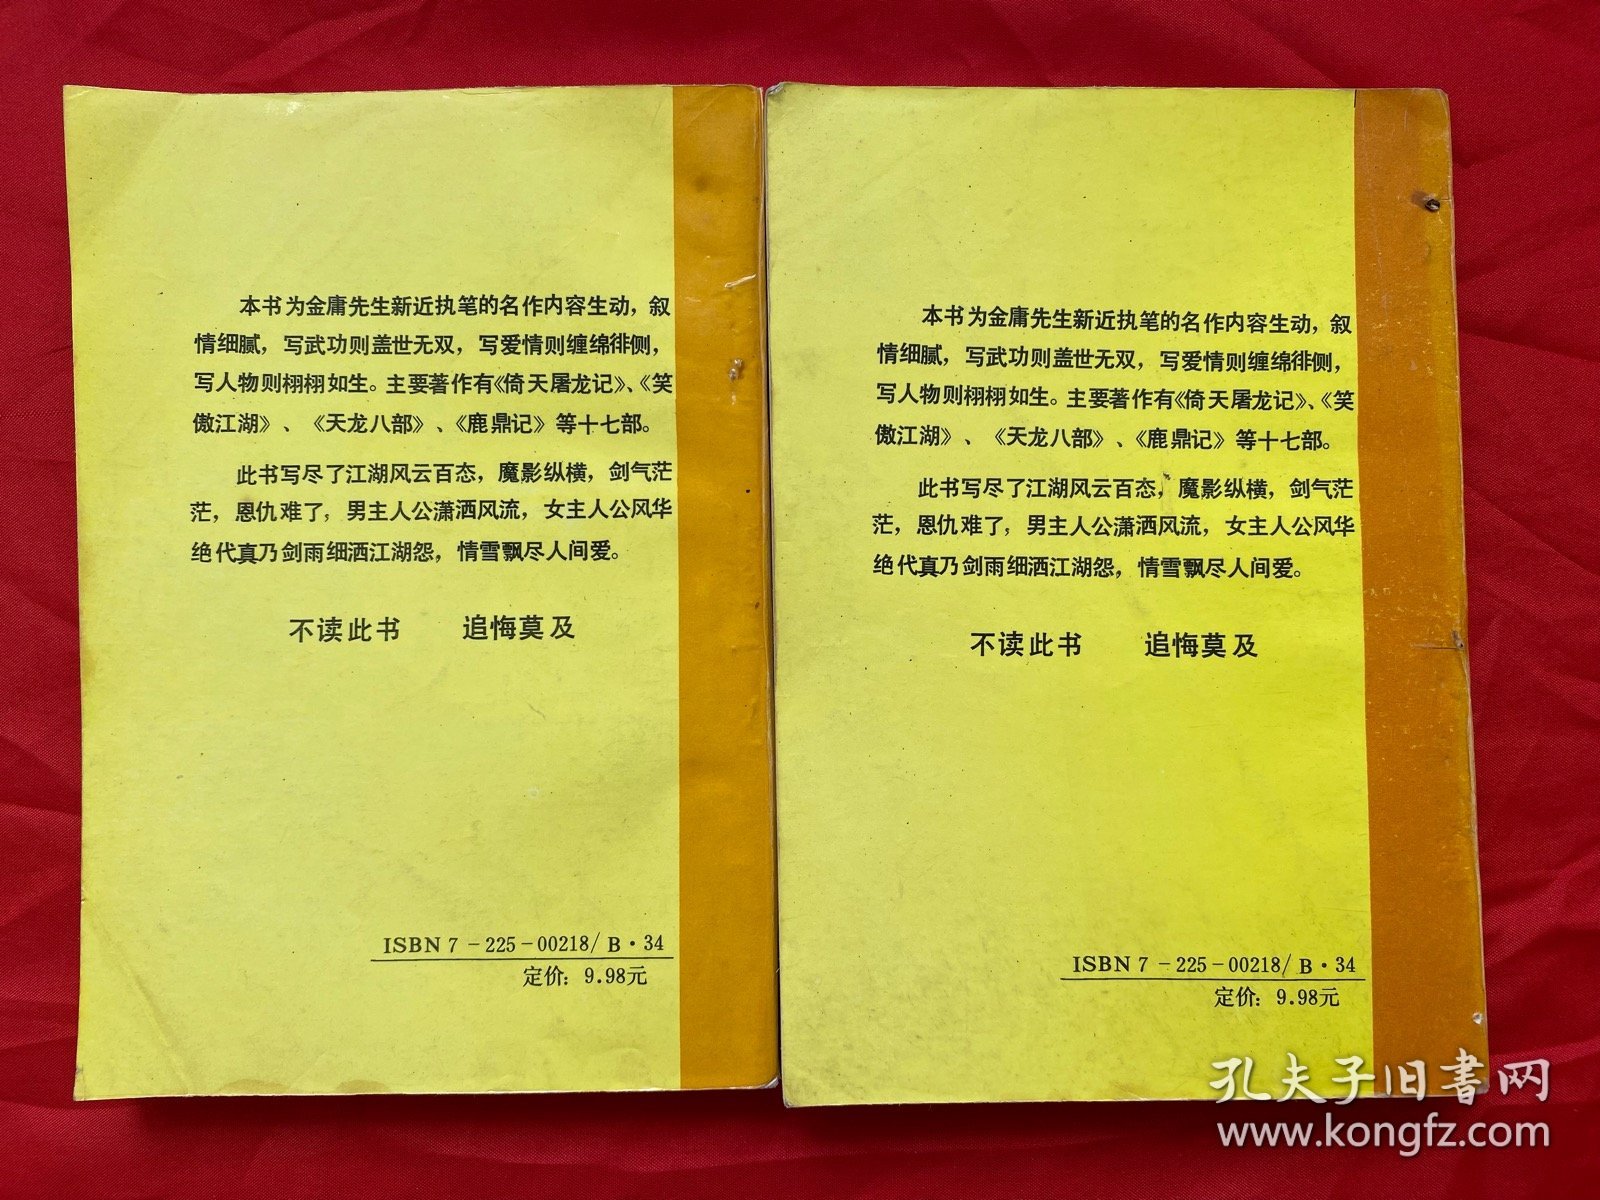 本书为金庸先生新近执笔的名作内容生动，叙
情细腻，写武功则盖世无双，写爱情则缠绵徘侧，
写人物则栩栩如生。主要著作有《倚天屠龙记》、《笑
傲江湖》、《天龙八部》、《鹿鼎记》等十七部。
此书写尽了江湖风云百态，魔影纵横，剑气茫
茫，恩仇难了，男主人公潇洒风流，女主人公风华
绝代真乃剑雨细洒江湖怨，情雪飘尽人间爱。
不读此书 追悔莫及
ISBN 7－225－00218/B·34
定价：9.98元
本书为金庸先生新近执笔的名作内容生动，叙
情细腻，写武功则盖世无双，写爱情则缠绵徘侧，
写人物则栩栩如生。主要著作有《倚天屠龙记》、《笑
傲江湖》、《天龙八部》、《鹿鼎记》等十七部。
此书写尽了江湖风云百态，魔影纵横，剑气茫
茫，恩仇难了，男主人公潇洒风流，女主人公风华
绝代真乃剑雨细洒江湖怨，情雪飘尽人间爱。
不读此书 追悔莫及
ISBN 7－225－00218/B·34
定价：9.98元
孔夫子旧書网
www.kongfz.com